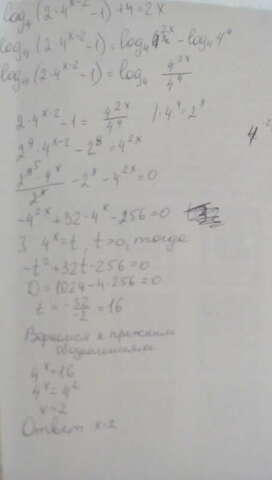 log₄(2·4ˣ⁻²-1)+4=2x
log₄(2·4ˣ⁻²-1)=log₄4²ˣ-log₄4⁴
log₄(2·4ˣ⁻²-1)=log₄ 4²ˣ/4⁴
2·4ˣ⁻²-1=4²ˣ/4⁴ /·4⁴=2⁸
2⁹·4ˣ⁻²-2⁸=4²ˣ
-2⁸-4²ˣ=0
-4²ˣ+32·4ˣ-256=0
4ˣ=t, t>0, тогда
-t²+32t-256=0
D=1024-4·256=0
t=-32/-2=16
Вернемся к прежним
обозначениям
4ˣ=16
4ˣ=4²
x=2
Ответ x=2